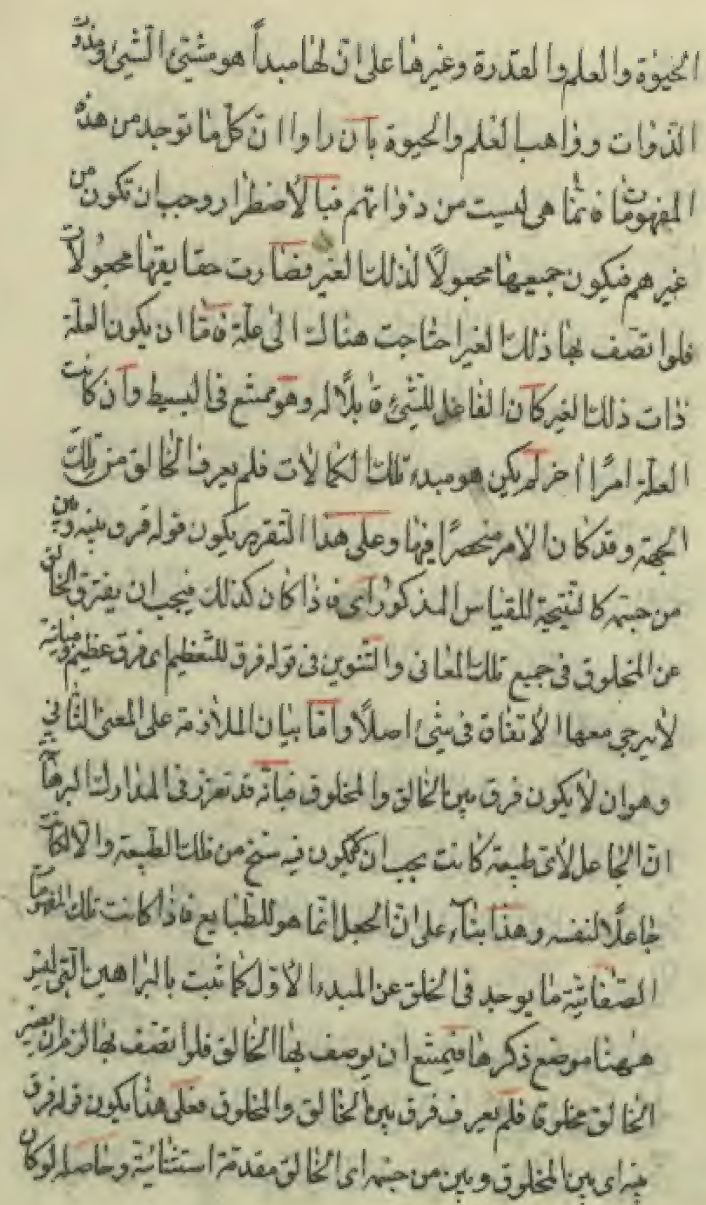 الحيوة والعلم والقدرة وغيرها على انّ لها مبدأ هو مشيّئ الشيئ ومذوّت
الذّوات وواهب العلم والحيوة بان راوا انّ كلّ ما توجد من هذه
المفهومات فانّما هي ليست من ذواتهم فبالاضطرار وجب ان تكون من
غيرهم فيكون جميعها مجعولًا لذلك الغير فصارت حقايقها مجعولات
فلو اتصف بها ذلك الغير احتاجت هنالك الى علّة فامّا ان يكون العلّة
ذات ذلك الغير كان الفاعل للشّيئ قابلًا له وهو ممتنع في البسيط وان كانت
العلّة امرًا اخر لم يكن هو مبدء تلك الكمالات فلم يعرف الخالق من تلك
الجهة وقد كان الامر منحصرًا فيها وعلى هذا التقرير يكون قوله فرق بينه وبين
من جسّمه كالنتيجة للقياس المذكور اى فاذا كان كذلك فيجب ان يفترق الخالق
عن المخلوق في جميع تلك المعاني والتّنوين في قوله فرق للتّعظيم اى فرق عظيم ومباينة
لا يرجى معها الاتفاق في شيئ اصلًا وامّا بيان الملازمة على المعنى الثّاني
وهو ان لا يكون فرق بين الخالق والمخلوق فبانّه قد تعزز في المدارك البرهانية
انّ الجاعل لاىّ طبيعة كانت يجب ان لا يكون فيه سنخ من تلك الطّبيعة والّا لكانت
جاعلًا لنفسه وهذا بناء على انّ الجعل انّما هو للطّبايع فاذا كانت تلك المفهومات
الصّفاتيّة ما يوجد في الخلق عن المبدء الاوّل كما ثبت بالبراهين الّتي ليس
ههنا موضع ذكرها فيمتنع ان يوصف بها الخالق فلو اتصف بها لزم ان يصير
الخالق مخلوقا فلم يعرف فرق بين الخالق والمخلوق فعلى هذا يكون قوله فرق
بينه اى بين المخلوق وبين من جسّمه اى الخالق مقدمة استثنائيّة وحاصله لو كان